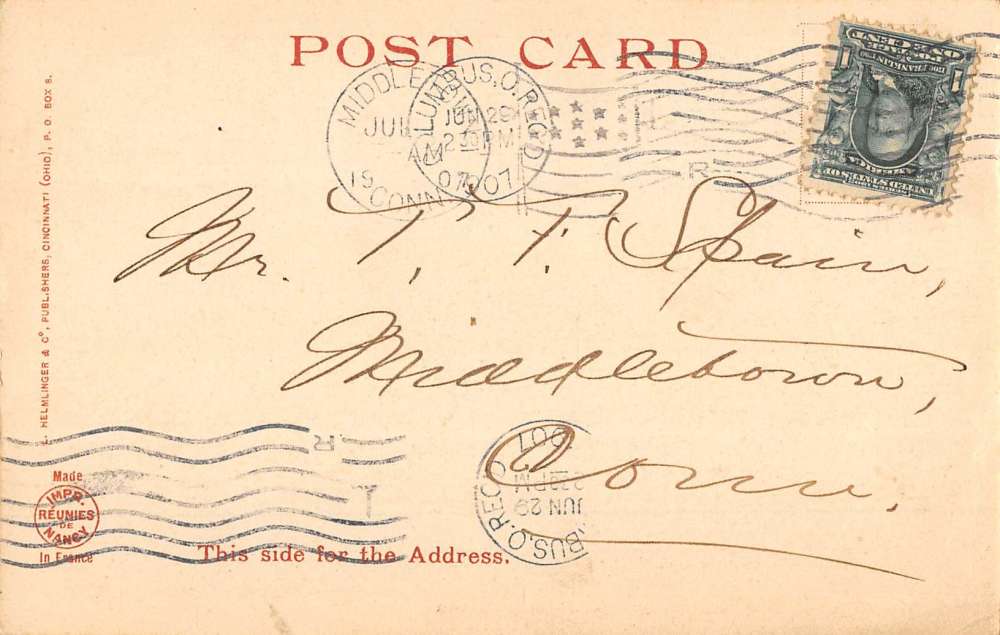 POST CARD
MIDDLET
JUL
AM
19
CONN
07
COLUMBUS.O.REC'D
JUN 29
2 30 PM
07
R
ONE CENT
1 1
UNITED STATES OF
AMERICA
Mr. T. T. Spain,
Middletown,
Conn.
HELMLINGER & Cº, PUBLISHERS, CINCINNATI (OHIO), P. O. BOX 8.
R
1
BUS.O.REC'D
JUN 29
2 30 PM
1907
Made
IMPR.
RÉUNIES
DE
NANCY
In France
This side for the Address.